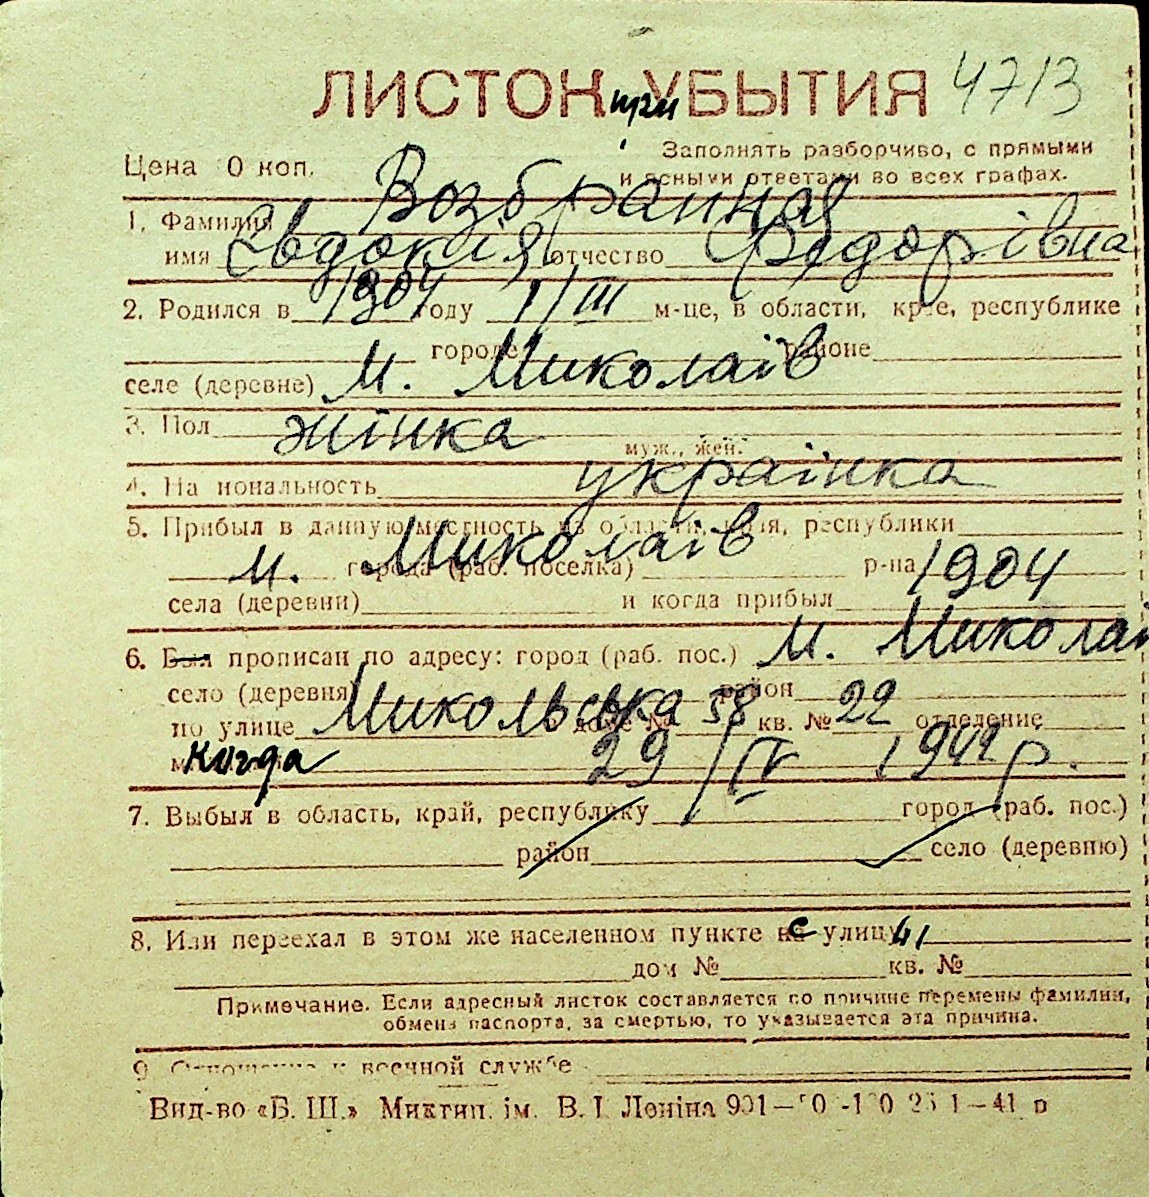 ЛИСТОК при УБЫТИЯ 4713
Заполнять разборчиво, с прямыми
Цена 0 коп.
и ясными ответами во всех графах.
1. Фамилия Возбранная
имя Євдокія отчество Федорівна
2. Родился в 1904 году 1/III м-це, в области, крае, республике
городе районе
селе (деревне) м. Миколаїв
3. Пол жінка
муж., жен.
4. На иональность українка
5. Прибыл в данную местность из области, края, республики
м. Миколаїв города (раб. поселка) р-на
села (деревни) и когда прибыл 1904
6. Был прописан по адресу: город (раб. пос.) м. Миколаї
село (деревня) район
по улице Микольська доме № 58 кв. № 22 отделение
когда 29/IV 1942 р.
7. Выбыл в область, край, республику город (раб. пос.)
район село (деревню)
8. Или переехал в этом же населенном пункте с улицы
дом № кв. №
Примечание. Если адресный листок составляется по причине перемены фамилии,
обмена паспорта, за смертью, то указывается эта причина.
9. Отношение к военной службе
Вид-во «Б. Ш.» Миктип. ім. В. І. Леніна